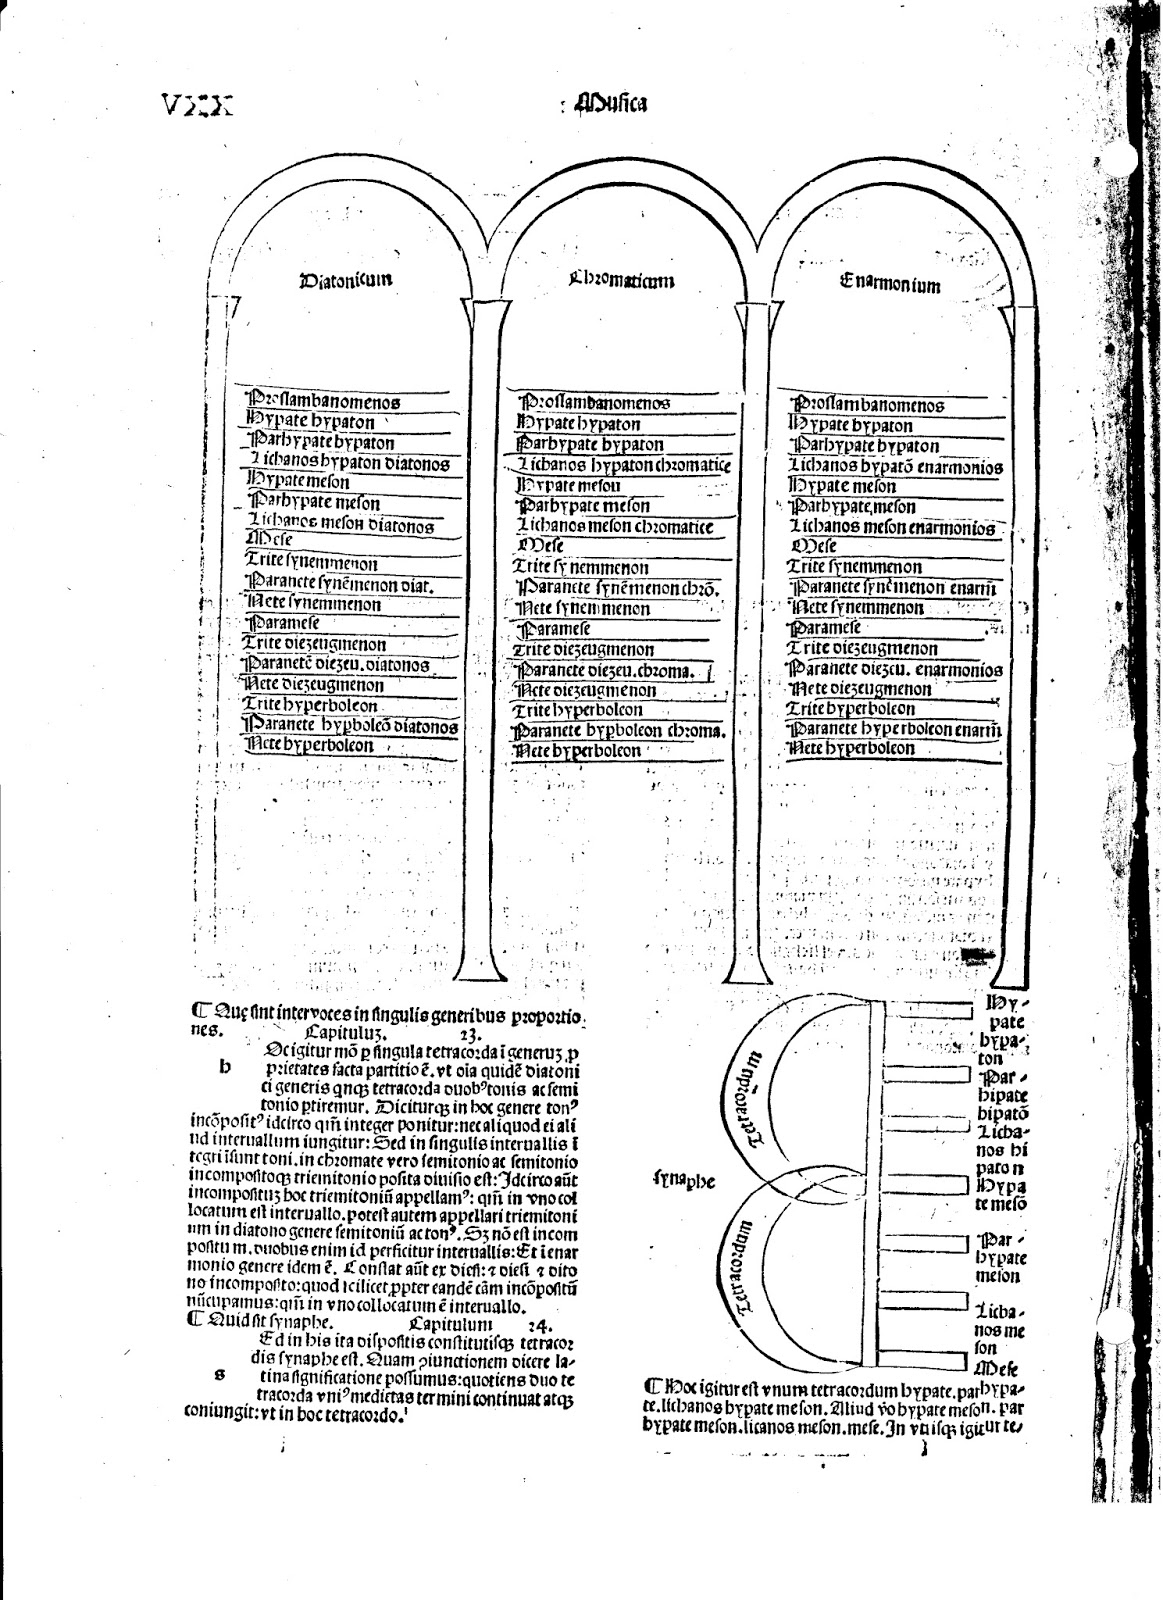 VXX
Musica
Diatonicum
Proslambanomenos
Hypate hypaton
Parhypate hypaton
Lichanos hypaton diatonos
Hypate meson
Parhypate meson
Lichanos meson diatonos
Mese
Trite synemmenon
Paranete synēmenon diat.
Nete synemmenon
Paramese
Trite diezeugmenon
Paranetē diezeu. diatonos
Nete diezeugmenon
Trite hyperboleon
Paranete hypboleō diatonos
Nete hyperboleon
Chromaticum
Proslambanomenos
Hypate hypaton
Parhypate hypaton
Lichanos hypaton chromatice
Hypate meson
Parhypate meson
Lichanos meson chromatice
Mese
Trite synemmenon
Paranete synēmenon chrō.
Nete synemmenon
Paramese
Trite diezeugmenon
Paranete diezeu. chroma.
Nete diezeugmenon
Trite hyperboleon
Paranete hypboleon chroma.
Nete hyperboleon
Enarmonium
Proslambanomenos
Hypate hypaton
Parhypate hypaton
Lichanos hypatō enarmonios
Hypate meson
Parhypate meson
Lichanos meson enarmonios
Mese
Trite synemmenon
Paranete synēmenon enarm̄
Nete synemmenon
Paramese
Trite diezeugmenon
Paranete diezeu. enarmonios
Nete diezeugmenon
Trite hyperboleon
Paranete hyperboleon enarm̄
Nete hyperboleon
¶ Quę sint inter voces in singulis generibus proportio
nes. Capituluꝫ. 23.
h Oc igitur mō ꝑ singula tetracorda ī generuꝫ ꝓ
prietates facta partitio ē. vt oīa quidē diatoni
ci generis qnqꝫ tetracorda duobꝰ tonis ac semi
tonio ꝑtiremur. Diciturqꝫ in hoc genere tonꝰ
incōpositꝰ idcirco qm̄ integer ponitur: nec aliquod ei ali
ud interuallum iungitur: Sed in singulis interuallis ī
tegri īsunt toni. in chromate vero semitonio ac semitonio
incompositoqꝫ triemitonio posita diuisio est: Idcirco aūt
incompositūꝫ hoc triemitoniū appellamꝰ: qm̄ in vno col
locatum est interuallo. potest autem appellari triemitoni
um in diatono genere semitoniū ac tonꝰ. Sꝫ nō est incom
positum. duobus enim id perficitur interuallis: Et ī enar
monio genere idem ē. Constat aūt ex diesi: ⁊ diesi ⁊ dito
no incomposito: quod scilicet ꝓpter eandē cām incōpositū
nūcupamus: qm̄ in vno collocatum ē interuallo.
¶ Quid sit synaphe. Capitulum 24.
s Ed in his ita dispositis constitutisqꝫ tetracor
dis synaphe est. Quam ꝯiunctionem dicere la-
tina significatione possumus: quotiens duo te
tracorda vniꝰ medietas termini continuat atqꝫ
coniungit: vt in hoc tetracordo.
Tetracordum
synaphe
Tetracordum
Hy-
pate
hypa-
ton
Par-
hipate
hipatō
Licha-
nos hi
paton
Hypa
te mesō
Par-
hypate
meson
Licha-
nos me
son
Mese
¶ Hoc igitur est vnum tetracordum hypate. parhypa-
te. lichanos hypate meson. Aliud vo hypate meson. par
hypate meson. licanos meson. mese. In vtrisqꝫ igitur te-